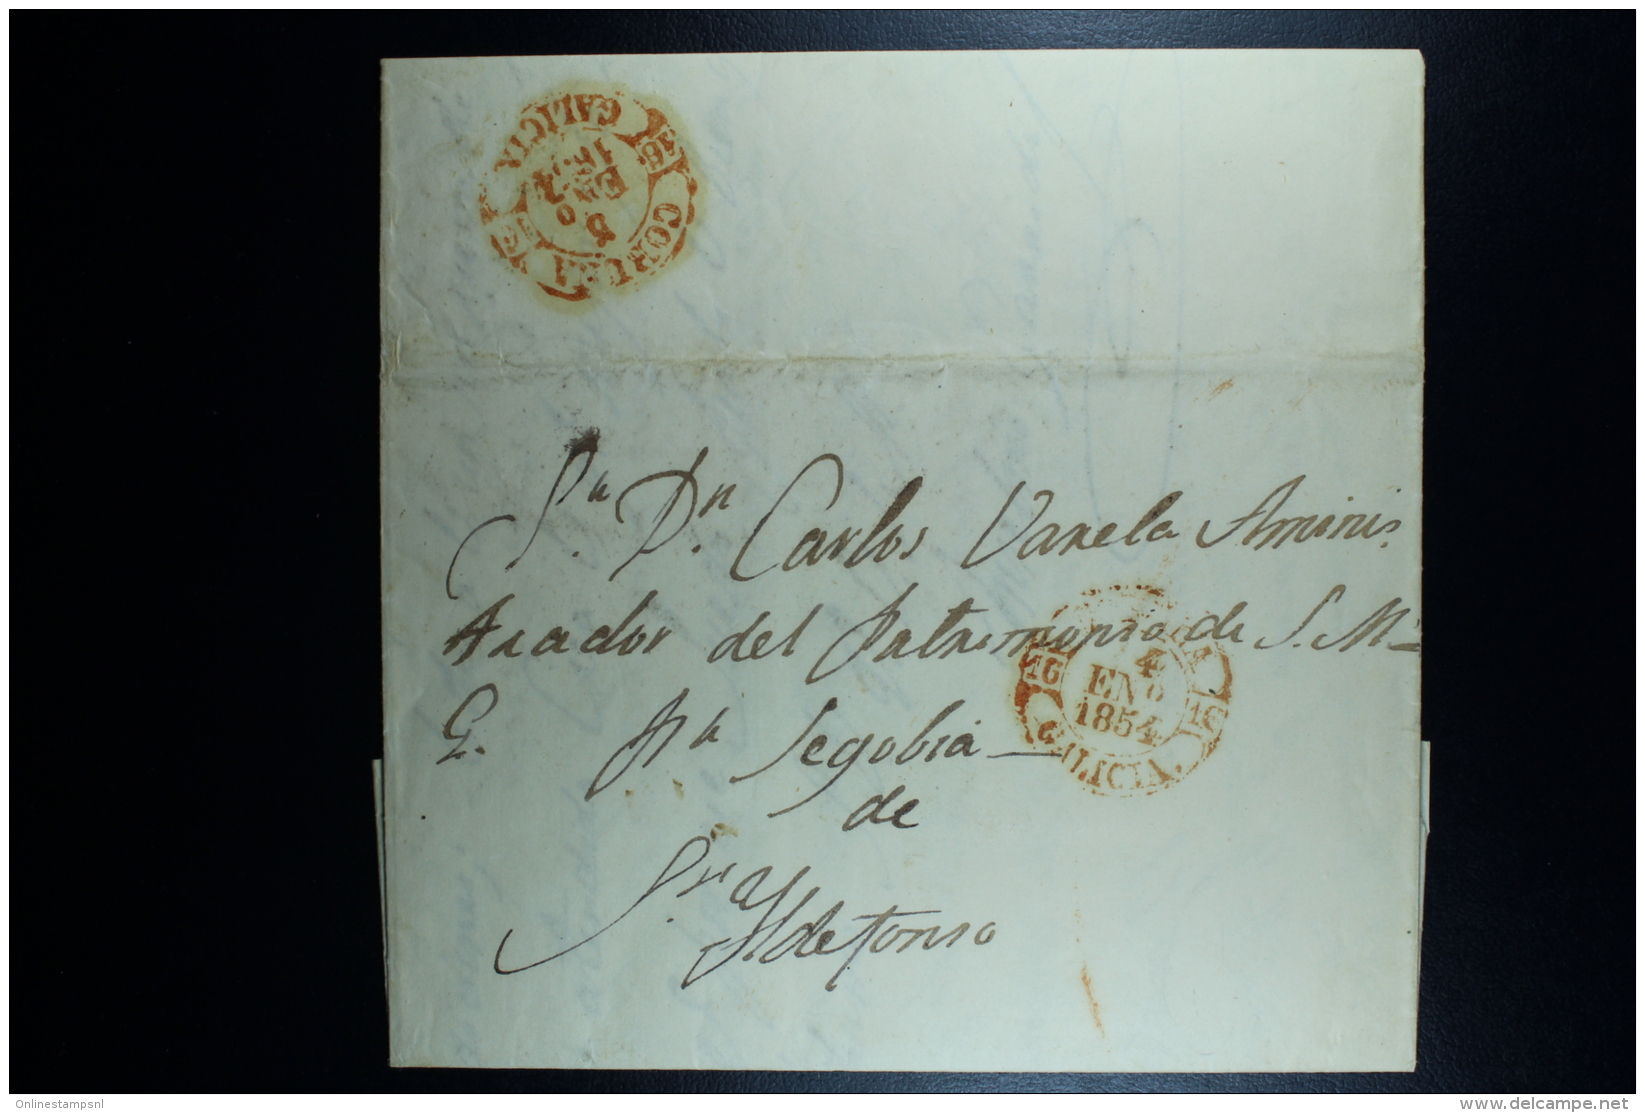 CORUÑA
16 16
5
ENº
1854
GALICIA
Sr. Dn. Carlos Varela Aminis
trador del Patrimonio de S. M.
G. Pa Segobia
de
Sn. Yldefonso
4
ENº
1854
16 16
GALICIA.
Onlinestampsnl
www.delcampe.net